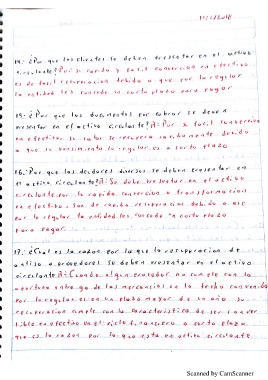 14.- ¿Por que los clientes se deben presentar en el activo
circulante? Por su rapida y facil conversion en efectivo
es de facil recuperacion debido a que por lo regular
la entidad les concede un corto plazo para pagar
15.- ¿Por que los documentos por cobrar se deben
presentar en el activo circulante? R= Por su facil conversion
en efectivo, su valor se recupera rapidamente debido
a que su vencimiento lo regular es a corto plazo
16.- Por que los deudores diversos se deben presentar en
el activo circulante? R= Se debe presentar en el activo
circulante por la rapida conversion o transformacion
en efectivo. Son de rapida recuperacion debido a que
por lo regular la entidad les concede un corto plazo
para pagar
17.- ¿Cual es la razon por la que la recuperacion de
anticipo a proveedores se deben presentar en el activo
circulante? R= Cuando algun proveedor no cumple con la
oportuna entrega de las mercancias en la fecha convenida
Por lo regular es en un plazo mayor de un año su
recuperacion cumple con la caracteristica de ser conver
tible en efectivo en el ciclo financiero a corto plazo
que es la razon por lo que esta en activo circulante
Scanned by CamScanner